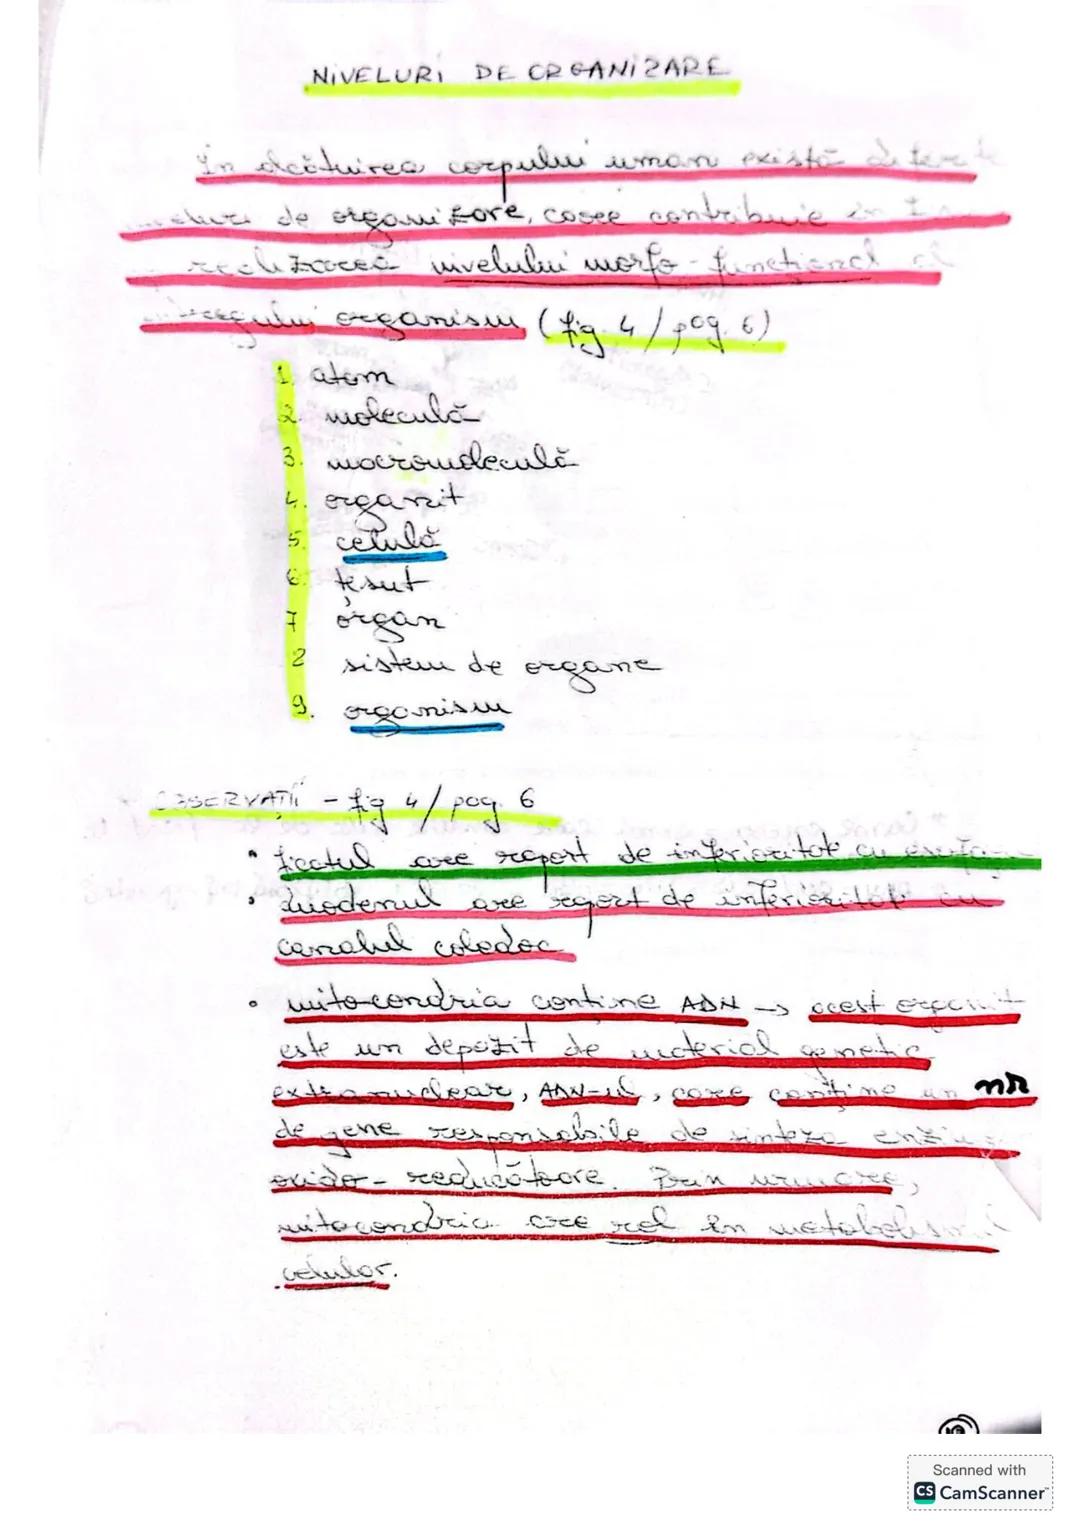 NIVELURI DE ORGANIZARE
In alcătuirea corpului uman există diferite
de organizare, care contribuie în
realizarea nivelului morfo-funcțional al
întregului organism (fig. 4 / pag. 6)
1. atom
2. moleculă
3. macromoleculă
4. organit
5. celulă
6. țesut
7 organ
8 sistem de organe
9. organism
OBSERVAȚII - fig 4 / pag. 6
• ficatul are raport de inferioritate cu
• duodenul are raport de inferioritate cu
canalul coledoc
• mitocondria conține ADN → acest organit
este un depozit de material genetic
extranuclear, ADN-ul, care conține un nr
de gene responsabile de sinteza
oxido-reducătoare. Prin urmare,
mitocondria are rol în metabolismul
celulor.
Scanned with
CS CamScanner